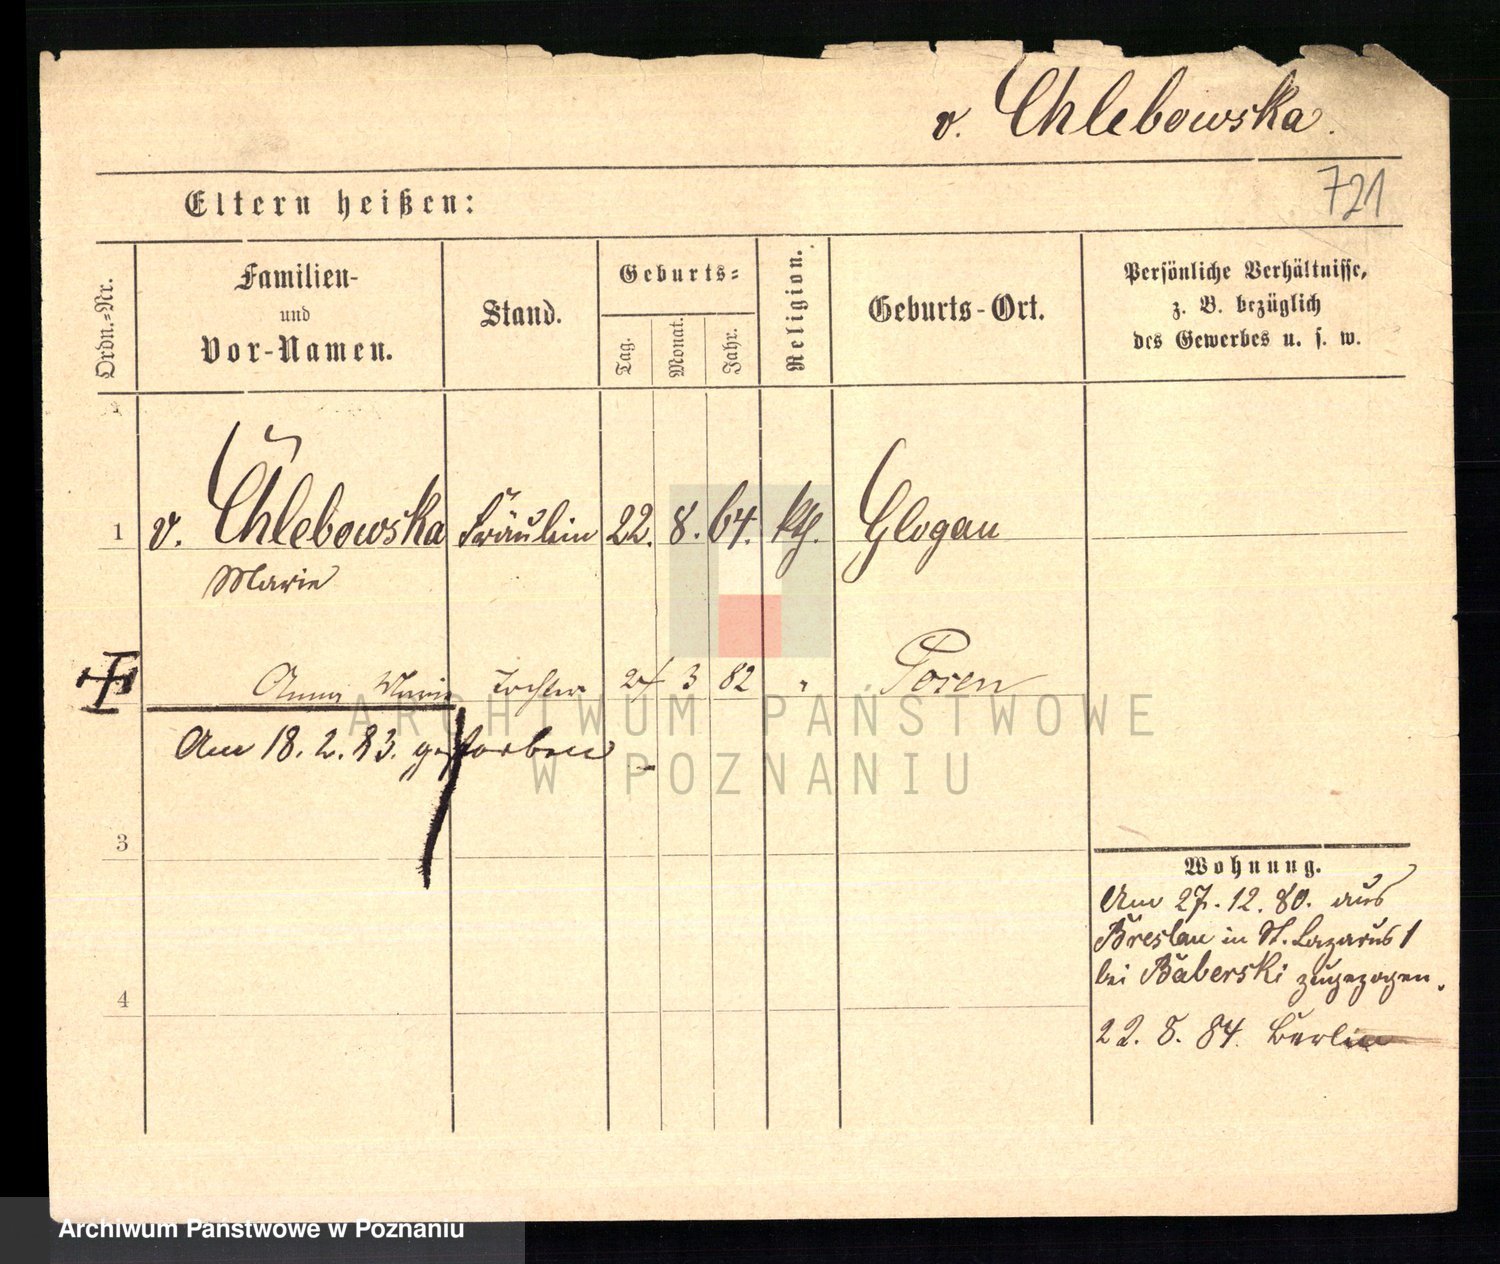 v. Chlebowska.
721
Eltern heißen:
Ordn.-Nr.
Familien-
und
Vor-Namen.
Stand.
Geburts-
Tag.
Monat.
Jahr.
Religion.
Geburts-Ort.
Persönliche Verhältnisse,
z. B. bezüglich
des Gewerbes u. s. w.
1 v. Chlebowska Fräulein 22. 8. 64. kth. Glogau
Marie
Anna Marie Tochter 24 3 82 " Posen
Am 18. 2. 83. gestorben
3
4
Wohnung.
Am 27. 12. 80. aus
Breslau in St. Lazarus 1
bei Baberski zugezogen.
22. 8. 84. Berlin
ARCHIWUM PAŃSTWOWE
W POZNANIU
Archiwum Państwowe w Poznaniu